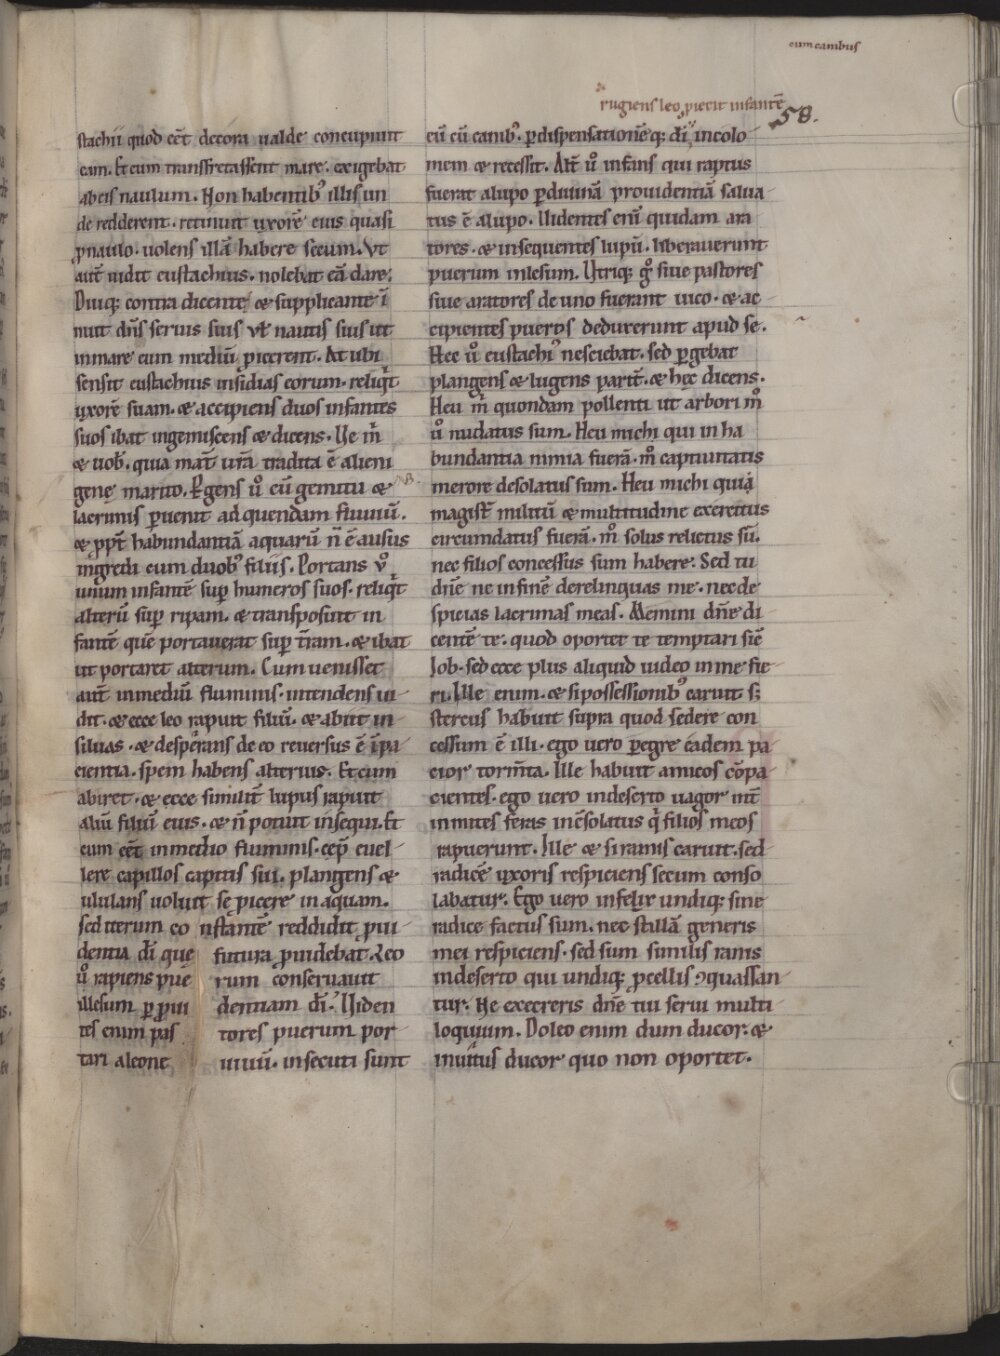 cum canibus
rugiens leo ꝓiecit infantē
58.
stachii quod eēt decora ualde concupiuit
eam. Et cum transfretassent mare. exigebat
ab eis naulum. Non habentib᷒ illis un
de redderent. retinuit uxorē eius quasi
ꝓnaulo. uolens illā habere secum. Vt
aut̄ uidit eustachius. nolebat eā dare.
Diuq; contra dicente & supplicante ī
nuit dn̄s seruus suis ut
inmare eum mediū ꝓicerent. At ubi
sensit eustachius insidias eorum. reliqͥt
uxorē suam. & accipiens duos infantes
suos ibat ingemiscens & dicens. Ve m̄
& uob̄. quia mat̄ ur̄a tradita ē alieni
genę marito. ꝑgens ů cū gemitu &
lacrimis ꝑuenit ad quendam fluuiū.
& ꝓpt̄ habundantiā aquarū n̄ ē ausus
ingredi cum duob᷒ filiis. Portans ů
unum infantē suꝑ humeros suos. reliqͥt
alterū suꝑ ripam. & transposuit in
fantē quē portauerat suꝑ t̄ram. & ibat
ut portaret alterum. Cum uenisset
aut̄ inmediū fluminis. intendens ui
dit. & ecce leo rapuit filiū. & abiit in
siluas. & desperans de eo reuersus ē īpa
cientia. spem habens alterius. Et cum
abiret. & ecce similit̄ lupus rapuit
aliū filiū eius. & n̄ potuit insequi. Et
cum eēt inmedio fluminis. cep̄ euel
lere capillos capitis sui. plangens &
ululans uoluit se ꝓicere in aquam.
sed iterum eo nstantē reddidit ꝓui
dentia dī quę futura ꝓuidebat. Leo
ů rapiens pue rum conseruauit
illesum ꝑ ꝓui dentiam dī. Uiden
tes enim pas tores puerum por
tari aleone uiuū. insecuti sunt
eū cū canib᷒. ꝑdispensationēq; dī, incolo
mem & recessit. Alt̄ ů infans qui raptus
fuerat alupo ꝑdiuinā prouidentiā salua
tus ē alupo. Uidentes enī quidam ara
tores. & insequentes lupū. liberauerunt
puerum inlesum. Utriq; g̊ siue pastores
siue aratores de uno fuerant uico. & ac
cipientes pueros deduxerunt apud se.
Hec ů eustachi᷒ nesciebat. sed ꝑgebat
plangens & lugens parit̄. & hęc dicens.
Heu m̄ quondam pollenti ut arbori m̊
ů nudatus sum. Heu michi qui in ha
bundantia nimia fuerā. m̊ captiuitatis
merore desolatus sum. Heu michi quia
magist̄ militū & multitudine exercitus
circumdatus fuerā. m̊ solus relictus sū.
nec filios concessus sum habere. Sed tu
dn̄e ne infinē derelinquas me. nec de
spicias lacrimas meas. Memini dn̄e di
centē te. quod oportet te temptari sic̄
Iob. sed ecce plus aliquid uideo in me fie
ri. Ille enim. & si possessionib᷒ caruit s;
stercus habuit supra quod sedere con
cessum ē illi. ego uero ꝑegre eadem pa
cior torm̄ta. Ille habuit amicos cōpa
cientes. ego uero indeserto uagor int̄
inmites feras incōsolatus qͥ filios meos
rapuerunt. Ille & si ramis caruit. sed
radicē uxoris respiciens secum conso
labatur. Ego uero infelix undiq; sine
radice factus sum. nec stillā generis
mei respiciens. sed sum similis ramis
indeserto qui undiq; ꝓcellis ꝯquassan
tur. Ne execreris dn̄e tui serui multi
loquium. Doleo enim dum ducor. &
inuitus ducor quo non oportet.